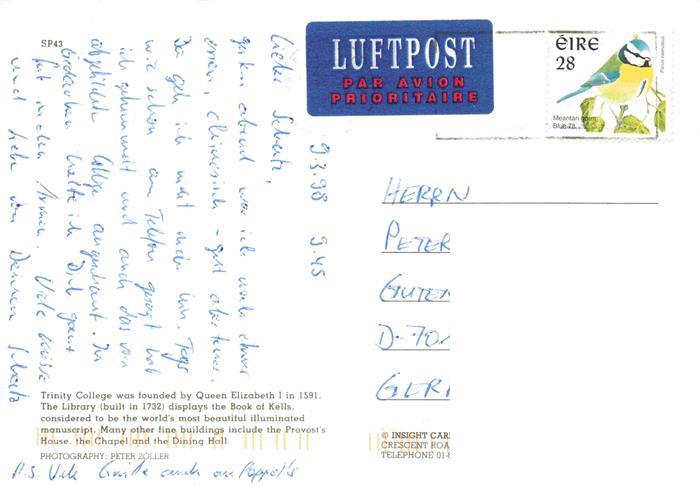 SP43
Lieber Schatz,
gestern abend war ich noch etwas
essen, chinesisch - gut aber teuer.
Da geh ich nicht mehr hin. Tags
wie schon am Telefon gesagt hab
ich gebummelt und auch das von
abgebildete College angeschaut. In
Gedanken halte ich Dich ganz
fest in den Armen. Viele Grüsse
und Liebe von Deinem Schatz
9.3.98 9.45
LUFTPOST
PAR AVION
PRIORITAIRE
ÉIRE
28
Meantán gorm
Blue Tit
Parus caeruleus
HERRN
PETER
GUTEN
D-70
GER
Trinity College was founded by Queen Elizabeth I in 1591.
The Library (built in 1732) displays the Book of Kells,
considered to be the world's most beautiful illuminated
manuscript. Many other fine buildings include the Provost's
House, the Chapel and the Dining Hall.
PHOTOGRAPHY: PETER ZÖLLER
© INSIGHT CAR
CRESCENT ROA
TELEPHONE 01-8
P.S. Viele Grüße auch an